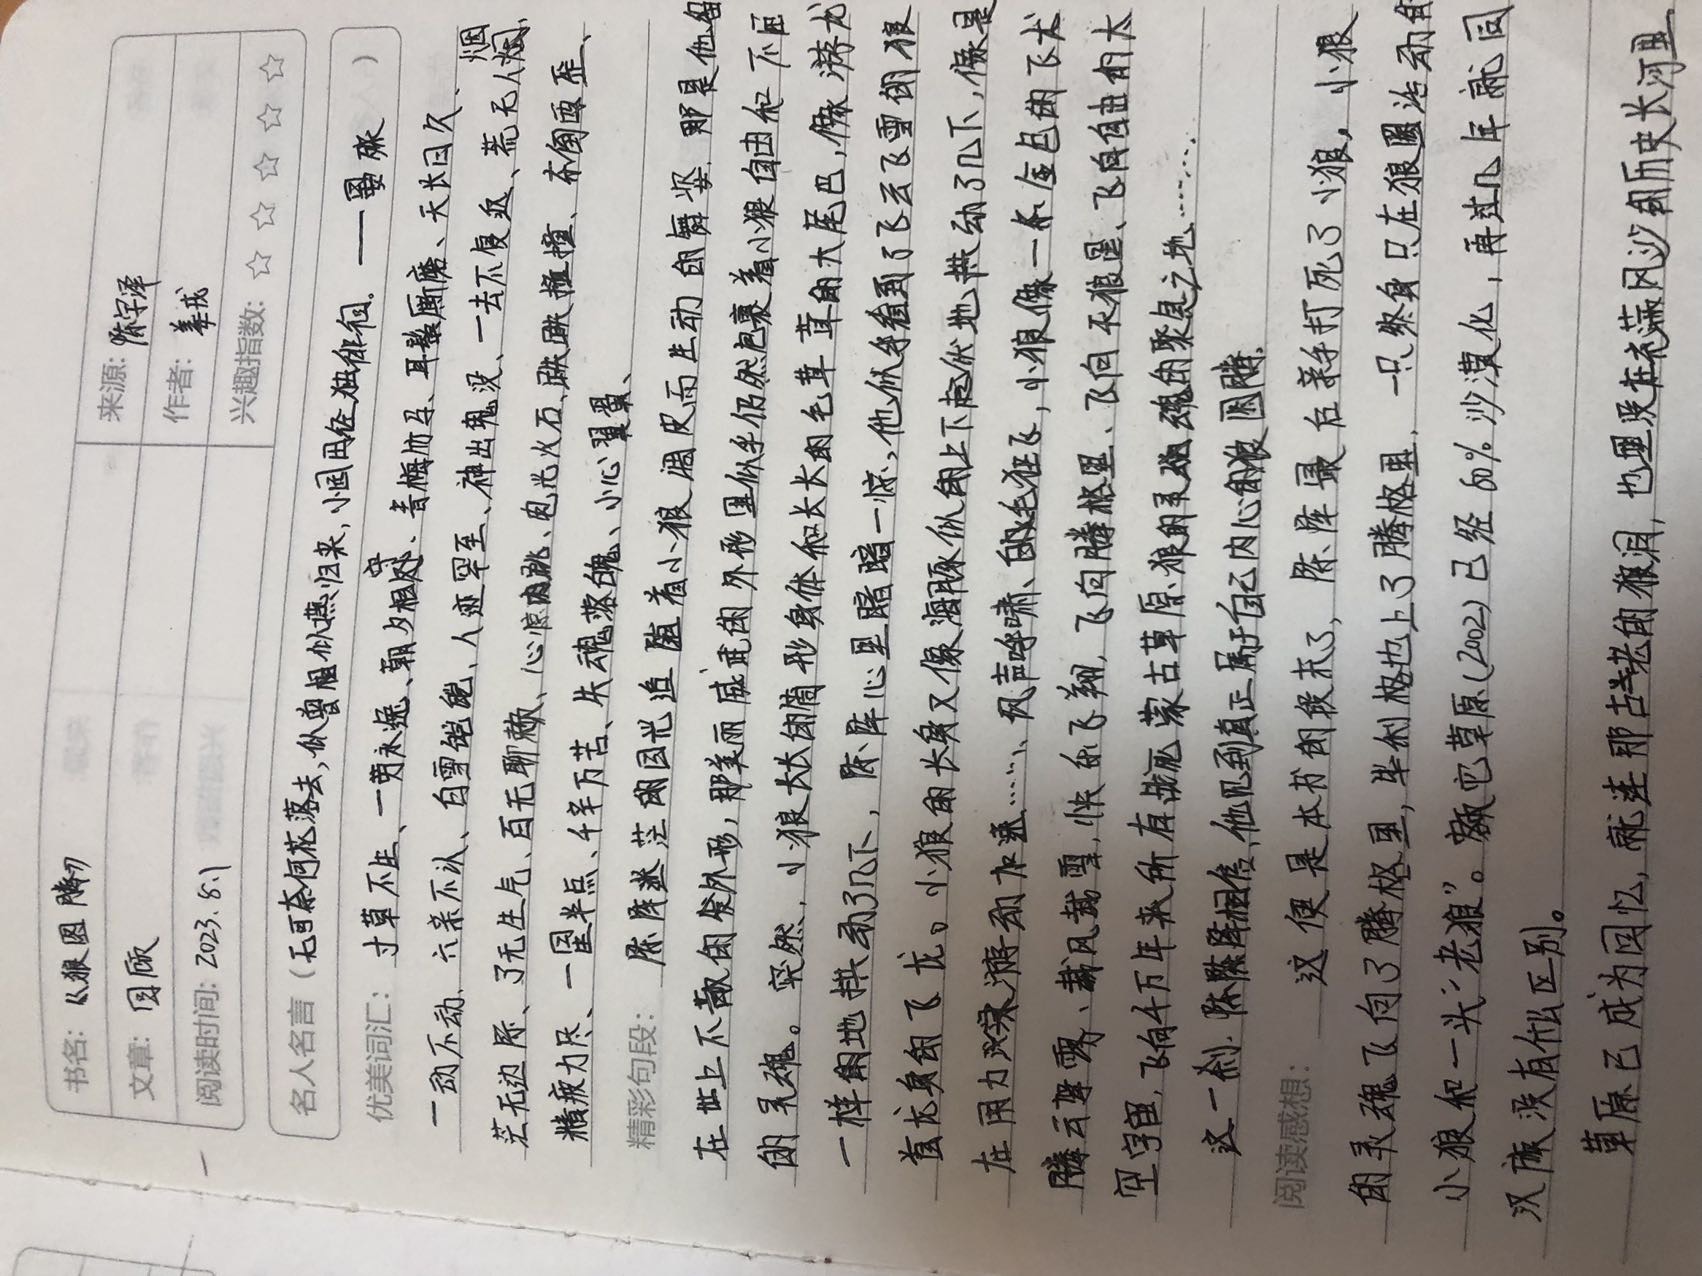 书名：《狼图腾》 来源：陈宇泽
文章：图腾 作者：姜戎
阅读时间：2023.8.1 兴趣指数：☆ ☆ ☆ ☆ ☆
名人名言（无可奈何花落去，似曾相似燕归来，小园香径独徘徊．——晏殊
优美词汇： 寸草不生、一劳永逸、朝夕相处、青梅竹马、耳鬓厮磨、天长日久、
一动不动、六亲不认、白雪皑皑、人迹罕至、神出鬼没、一去不复返、荒无人烟、
茫无边际、了无生气、百无聊赖、心惊肉跳、电光火石、跌跌撞撞、东倒西歪、
精疲力尽、一星半点、千辛万苦、失魂落魄、小心翼翼、
精彩句段： 陈阵迷茫的目光追随着小狼调皮而生动的舞姿，那是他留
在世上不散的外形，那美丽威武的外形里似乎仍然包裹着小狼自由和不屈
的灵魂。突然，小狼大大的筒形身体和长长的毛茸茸的大尾巴，像游龙
一样的地拱动了几下，陈阵心里暗暗一惊，他似乎看到了飞云飞雪的狼
首龙身的飞龙。小狼的长身又像海豚似的上下起伏地拱动了几下，像是
在用力游动加速……，风声呼啸、白毛狂飞，小狼像一条金色的飞龙
腾云驾雾、载风载雪，快乐飞翔，飞向腾格里、飞向天狼星、飞向自由的太
空宇宙，飞向千万年来所有战死蒙古草原狼的灵魂的聚息之地……，
这一刹．陈阵相信，他见到真正属于自己内心的狼图腾．
阅读感想： 这便是本书的候末了，陈阵最后亲手打死了小狼，小狼
的灵魂飞向了腾格里，毕利格也上了腾格里，一只终身只在狼圈活动的
小狼和一头“老狼”。额它草原(2002)已经80%沙漠化，再过几年就同
汉底没有什么区别。
草原已成为回忆，就连那古老的狼洞，也埋没在充满风沙的历史长河里